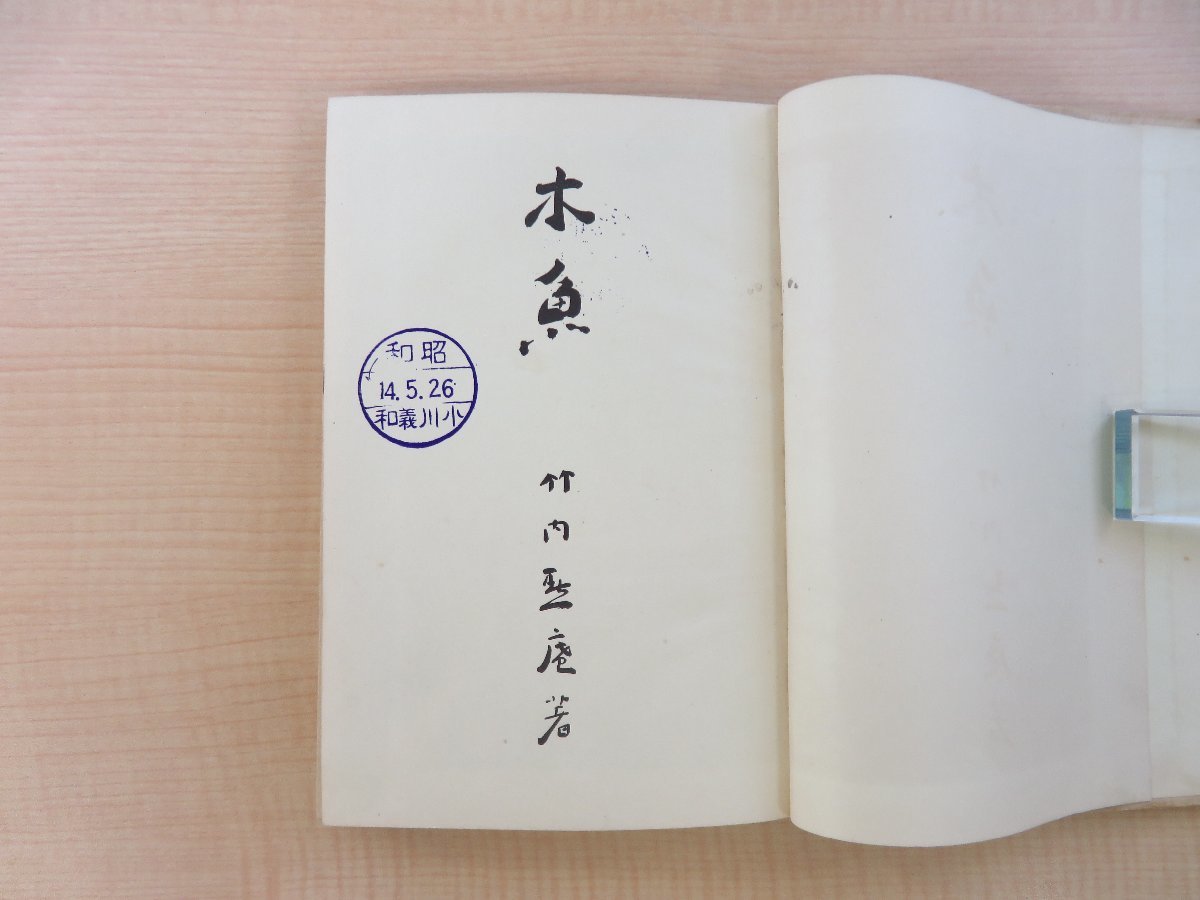 木魚
竹内黙庵著
昭和
14.5.26
小川義和